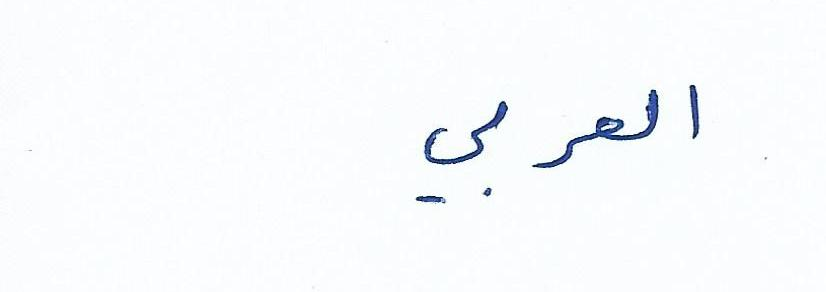 العربي